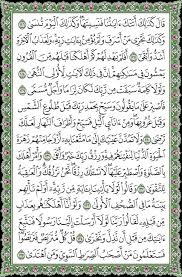 قَالَ كَذَٰلِكَ أَتَتْكَ ءَايَٰتُنَا فَنَسِيتَهَا وَكَذَٰلِكَ ٱلْيَوْمَ تُنسَىٰ
۝١٢٦ وَكَذَٰلِكَ نَجْزِى مَنْ أَسْرَفَ وَلَمْ يُؤْمِنۢ بِـَٔايَٰتِ رَبِّهِۦ وَلَعَذَابُ ٱلْءَاخِرَةِ
أَشَدُّ وَأَبْقَىٰٓ ۝١٢٧ أَفَلَمْ يَهْدِ لَهُمْ كَمْ أَهْلَكْنَا قَبْلَهُم مِّنَ ٱلْقُرُونِ
يَمْشُونَ فِى مَسَٰكِنِهِمْ إِنَّ فِى ذَٰلِكَ لَءَايَٰتٍ لِّأُو۟لِى ٱلنُّهَىٰ ۝١٢٨
وَلَوْلَا كَلِمَةٌ سَبَقَتْ مِن رَّبِّكَ لَكَانَ لِزَامًا وَأَجَلٌ مُّسَمًّى ۝١٢٩
فَٱصْبِرْ عَلَىٰ مَا يَقُولُونَ وَسَبِّحْ بِحَمْدِ رَبِّكَ قَبْلَ طُلُوعِ ٱلشَّمْسِ
وَقَبْلَ غُرُوبِهَا وَمِنْ ءَانَآئِ ٱلَّيْلِ فَسَبِّحْ وَأَطْرَافَ ٱلنَّهَارِ لَعَلَّكَ
تَرْضَىٰ ۝١٣٠ وَلَا تَمُدَّنَّ عَيْنَيْكَ إِلَىٰ مَا مَتَّعْنَا بِهِۦٓ أَزْوَٰجًا مِّنْهُمْ زَهْرَةَ
ٱلْحَيَوٰةِ ٱلدُّنْيَا لِنَفْتِنَهُمْ فِيهِ وَرِزْقُ رَبِّكَ خَيْرٌ وَأَبْقَىٰ ۝١٣١ وَأْمُرْ أَهْلَكَ
بِٱلصَّلَوٰةِ وَٱصْطَبِرْ عَلَيْهَا لَا نَسْـَٔلُكَ رِزْقًا نَّحْنُ نَرْزُقُكَ وَٱلْعَٰقِبَةُ
لِلتَّقْوَىٰ ۝١٣٢ وَقَالُوا۟ لَوْلَا يَأْتِينَا بِـَٔايَةٍ مِّن رَّبِّهِۦٓ أَوَلَمْ تَأْتِهِم
بَيِّنَةُ مَا فِى ٱلصُّحُفِ ٱلْأُولَىٰ ۝١٣٣ وَلَوْ أَنَّآ أَهْلَكْنَٰهُم بِعَذَابٍ
مِّن قَبْلِهِۦ لَقَالُوا۟ رَبَّنَا لَوْلَآ أَرْسَلْتَ إِلَيْنَا رَسُولًا فَنَتَّبِعَ
ءَايَٰتِكَ مِن قَبْلِ أَن نَّذِلَّ وَنَخْزَىٰ ۝١٣٤ قُلْ كُلٌّ مُّتَرَبِّصٌ فَتَرَبَّصُوا۟
فَسَتَعْلَمُونَ مَنْ أَصْحَٰبُ ٱلصِّرَٰطِ ٱلسَّوِىِّ وَمَنِ ٱهْتَدَىٰ ۝١٣٥